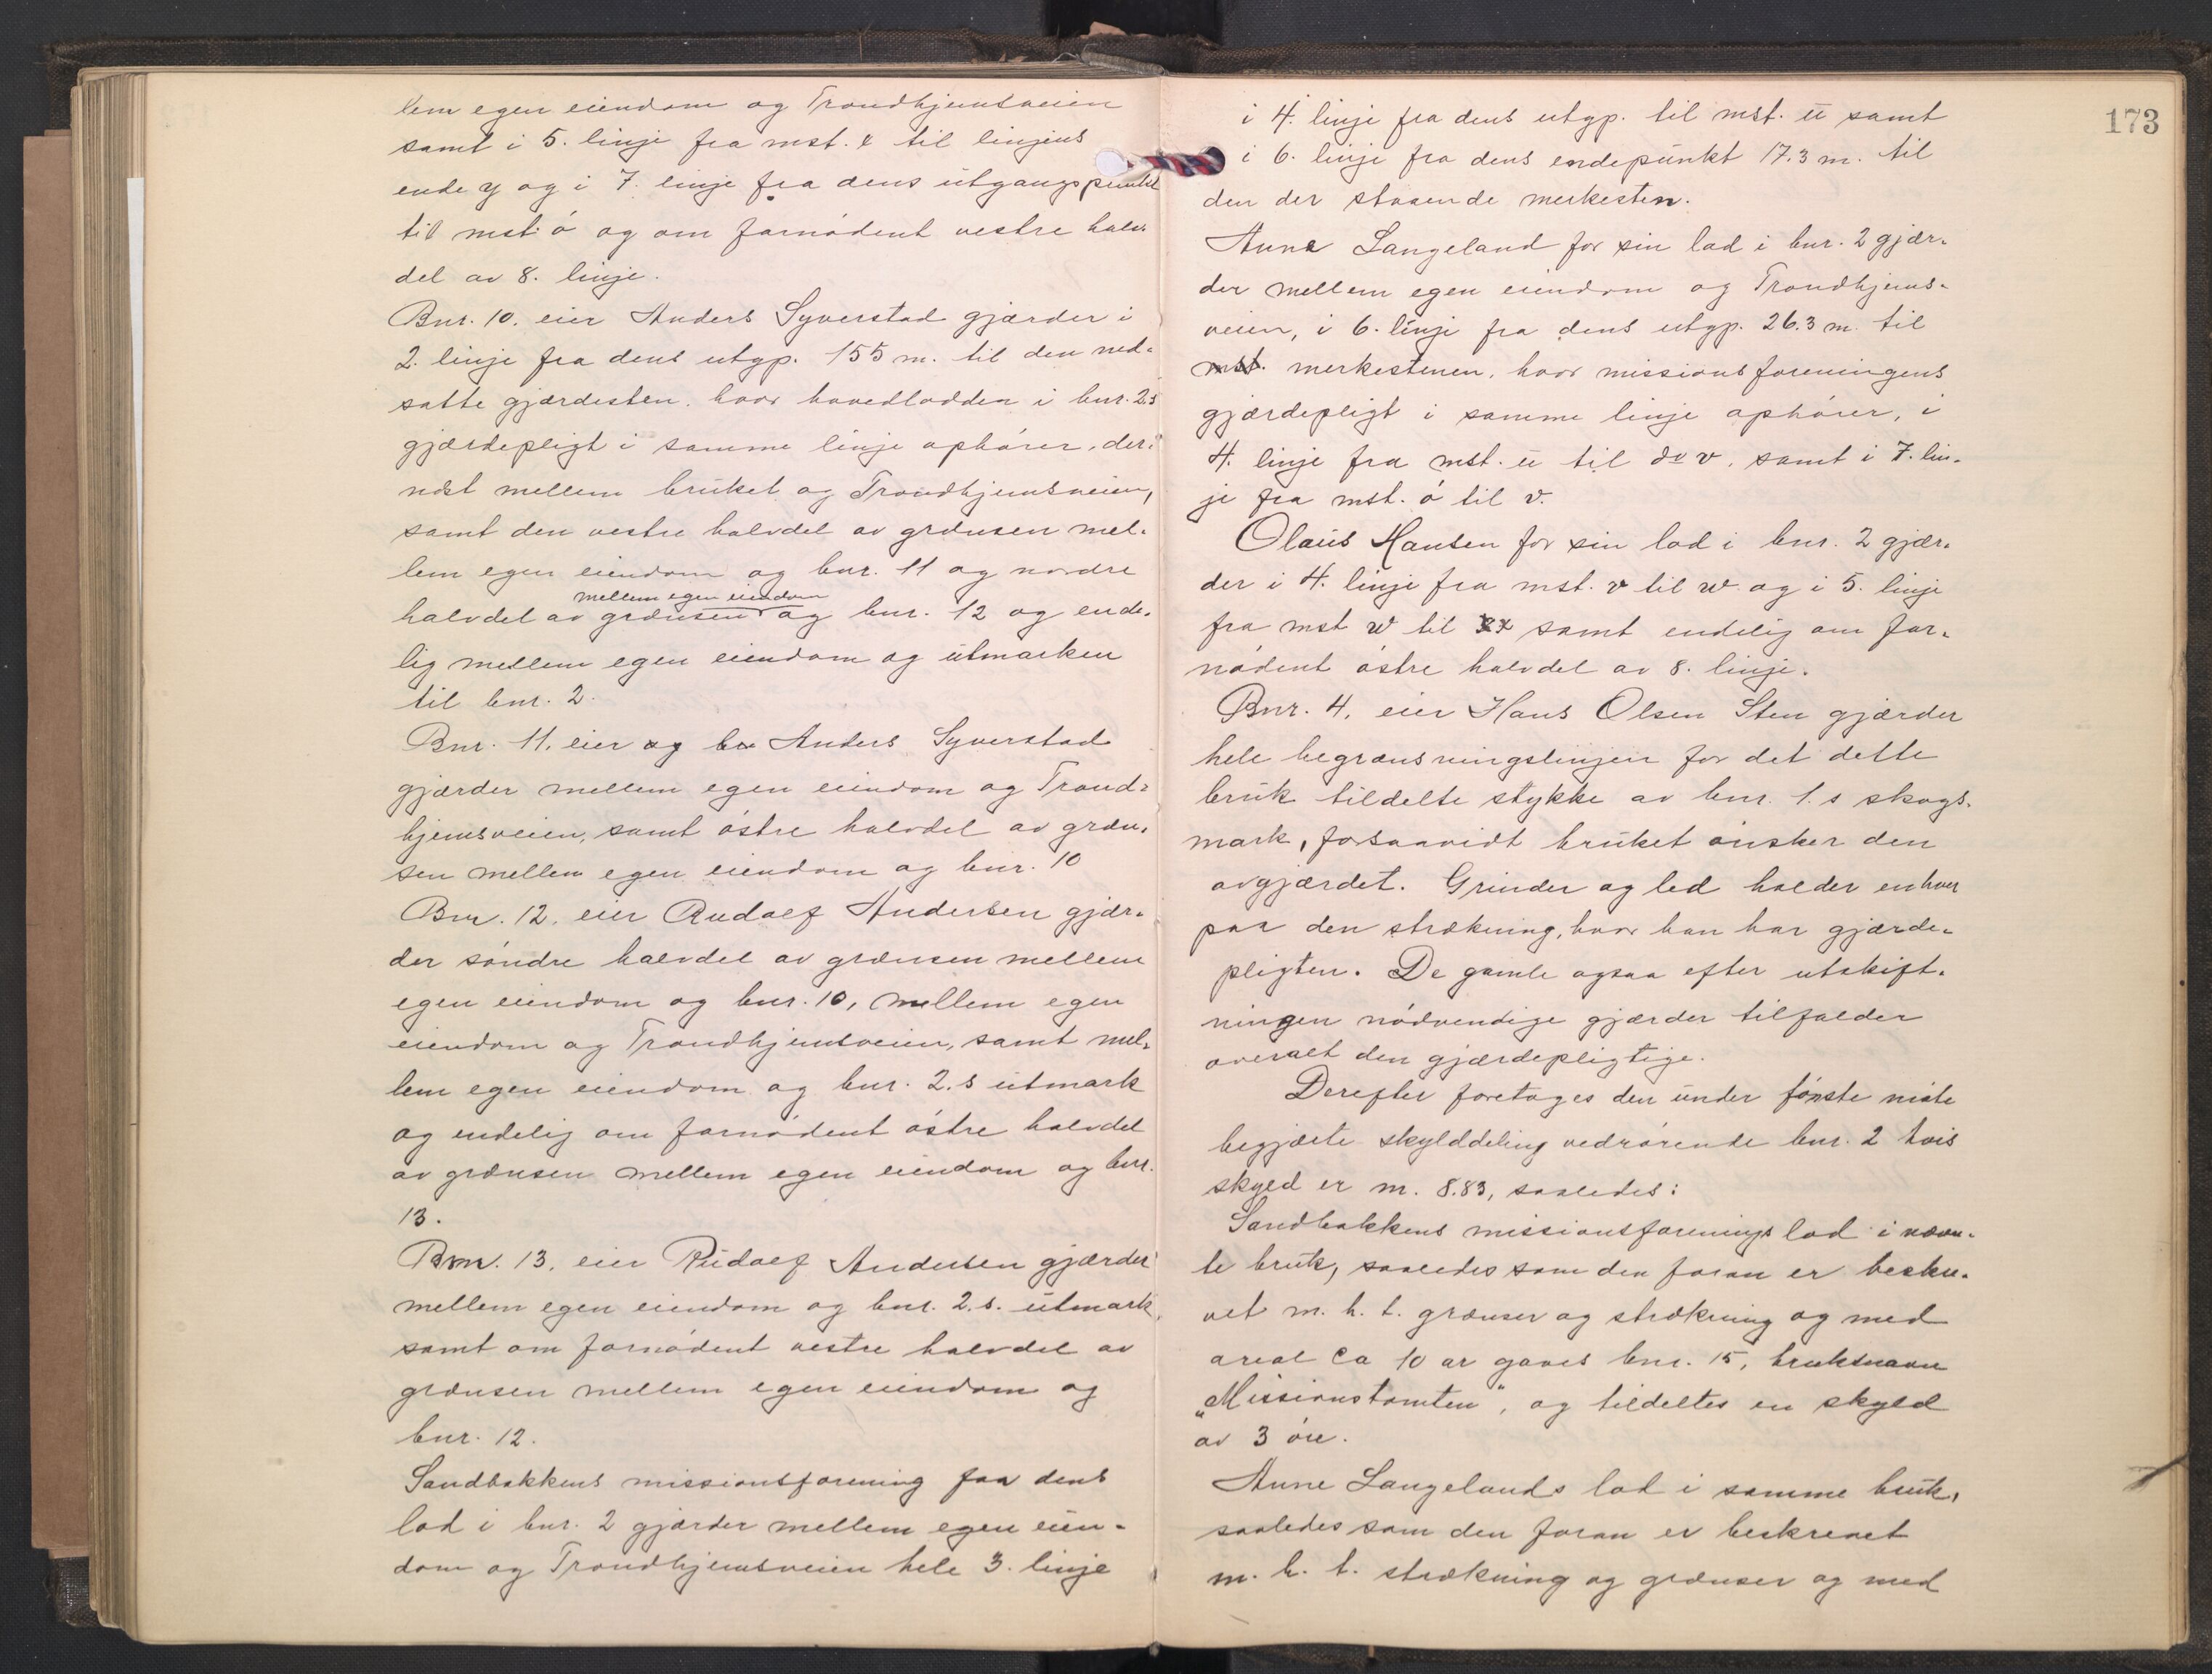 lem egen eiendom og Trondhjemsveien
samt i 5. linje fra mst. x til linjens
ende y og i 7. linje fra dens utgangspunkt
til mst. ó og om fornødent vestre halv-
del av 8. linje.
Bnr. 10, eier Anders Syverstad gjærder i
2. linje fra dens utgp. 155 m. til den ned-
satte gjærdesten, hvor hovedlodden i bnr. 2s
gjærdepligt i samme linje ophører, der-
næst mellem bruket og Trondhjemsveien,
samt den vestre halvdel av grænsen mel-
lem egen eiendom og bnr. 11 og nordre
mellem egen eiendom
halvdel av grænsen og bnr. 12 og ende-
lig mellem egen eiendom og utmarken
til bnr. 2.
Bnr. 11, eier og br Anders Syverstad
gjærder mellem egen eiendom og Trond-
hjemsveien, samt østre halvdel av græn-
sen mellem egen eiendom og bnr. 10
Bnr. 12, eier Rudolf Andersen gjær-
der søndre halvdel av grænsen mellem
egen eiendom og bnr. 10, mellem egen
eiendom og Trondhjemsveien, samt mel-
lem egen eiendom og bnr. 2.s utmark
og endelig om fornødent østre halvdel
av grænsen mellem egen eiendom og bnr.
13.
Bnr. 13, eier Rudolf Andersen gjærder
mellem egen eiendom og bnr. 2.s. utmark,
samt om fornødent vestre halvdel av
grænsen mellem egen eiendom og
bnr. 12.
Sandbakkens missionsforening for dens
lod i bnr. 2 gjærder mellem egen eien-
dom og Trondhjemsveien hele 3. linje
173
i 4. linje fra dens utgp. til mst. u samt
i 6. linje fra dens endepunkt 17.3 m. til
den der staaende merkesten.
Anne Langeland for sin lod i bnr. 2 gjær-
der mellem egen eiendom og Trondhjems-
veien, i 6. linje fra dens utgp. 26.3 m. til
mst. merkestenen, hvor missionsforeningens
gjærdepligt i samme linje ophører, i
4. linje fra mst. u til do v, samt i 7. lin-
je fra mst. ó til v.
Olaus Hansen for sin lod i bnr. 2 gjær-
der i 4. linje fra mst. v til w og i 5. linje
fra mst w til x samt endelig om for-
nødent østre halvdel av 8. linje.
Bnr. 4, eier Hans Olsen Sten gjærder
hele begrænsningslinjen for det dette
bruk tildelte stykke av bnr. 1.s skogs-
mark, forsaavidt bruket ønsker den
avgjærdet. Grinder og led holder enhver
paa den strækning, hvor han har gjærde-
pligten. De gamle ogsaa efter utskift-
ningen nødvendige gjærder tilfalder
overalt den gjærdepligtige.
Derefter foretages den under første møte
begjærte skylddeling vedrørende bnr. 2 hvis
skyld er m. 8.83, saaledes:
Sandbakkens missionsforenings lod i nævn-
te bruk, saaledes som den foran er beskre-
vet m. h. t. grænser og strækning og med
areal ca 10 ar gaves bnr. 15, bruksnavn
„Missionstomten“, og tildeltes en skyld
av 3 øre.
Anne Langelands lod i samme bruk,
saaledes som den foran er beskrevet
m. h. t. strækning og grænser og med